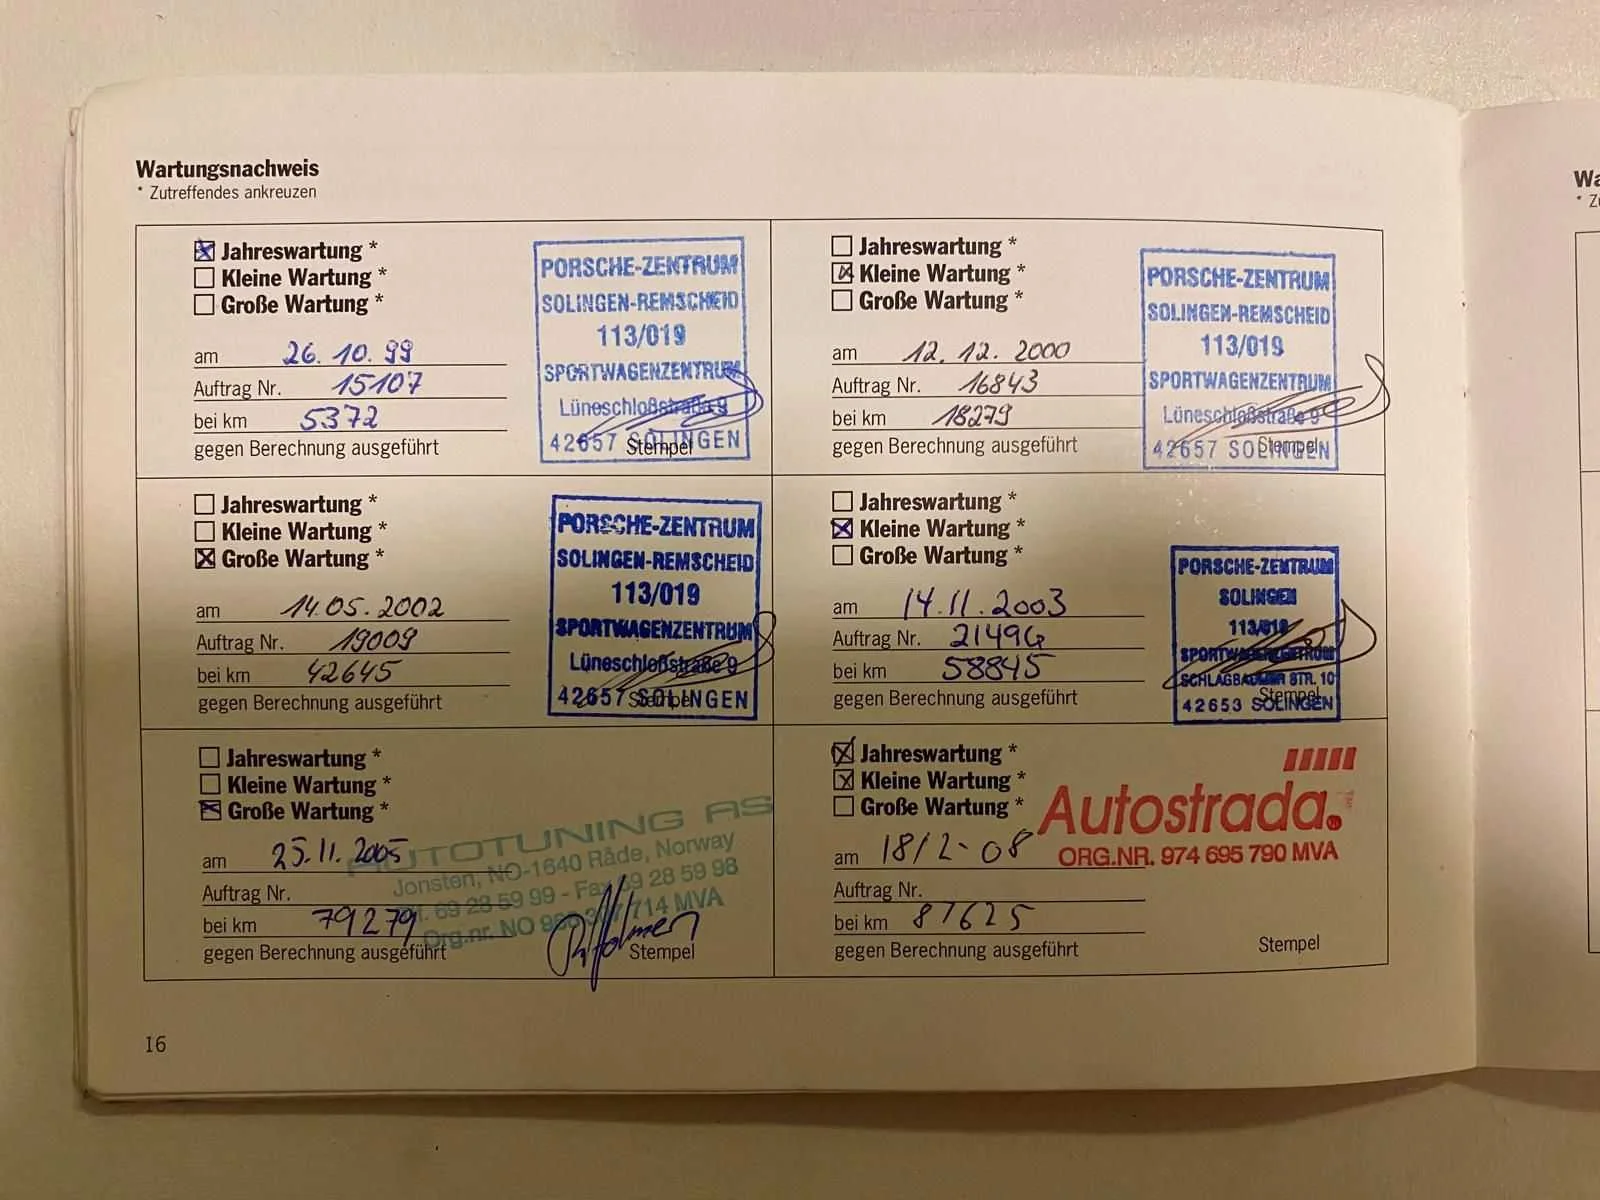 Wartungsnachweis
* Zutreffendes ankreuzen
Jahreswartung *
Kleine Wartung *
Große Wartung *
am 26.10.99
Auftrag Nr. 15107
bei km 5372
gegen Berechnung ausgeführt
PORSCHE-ZENTRUM
SOLINGEN-REMSCHEID
113/019
SPORTWAGENZENTRUM
Lüneschloßstraße 9
42657 SOLINGEN
Stempel
Jahreswartung *
Kleine Wartung *
Große Wartung *
am 12.12.2000
Auftrag Nr. 16843
bei km 18279
gegen Berechnung ausgeführt
PORSCHE-ZENTRUM
SOLINGEN-REMSCHEID
113/019
SPORTWAGENZENTRUM
Lüneschloßstraße 9
42657 SOLINGEN
Stempel
Jahreswartung *
Kleine Wartung *
Große Wartung *
am 14.05.2002
Auftrag Nr. 19009
bei km 42645
gegen Berechnung ausgeführt
PORSCHE-ZENTRUM
SOLINGEN-REMSCHEID
113/019
SPORTWAGENZENTRUM
Lüneschloßstraße 9
42657 SOLINGEN
Stempel
Jahreswartung *
Kleine Wartung *
Große Wartung *
am 14.11.2003
Auftrag Nr.
bei km 58845
gegen Berechnung ausgeführt
PORSCHE-ZENTRUM
SOLINGEN
113/019
SPORTWAGENZENTRUM
SCHLAGBAUMER STR. 10
42653 SOLINGEN
Stempel
Jahreswartung *
Kleine Wartung *
Große Wartung *
am 25.11.2005
Auftrag Nr.
bei km 79279
gegen Berechnung ausgeführt
AUTOTUNING AS
Jonsten, NO-1640 Råde, Norway
69 28 59 99 - Fax 69 28 59 98
Org.nr. NO 714 MVA
Stempel
Jahreswartung *
Kleine Wartung *
Große Wartung *
am 18/2-08
Auftrag Nr.
bei km 87625
gegen Berechnung ausgeführt
Autostrada.
ORG.NR. 974 695 790 MVA
Stempel
16
Wa